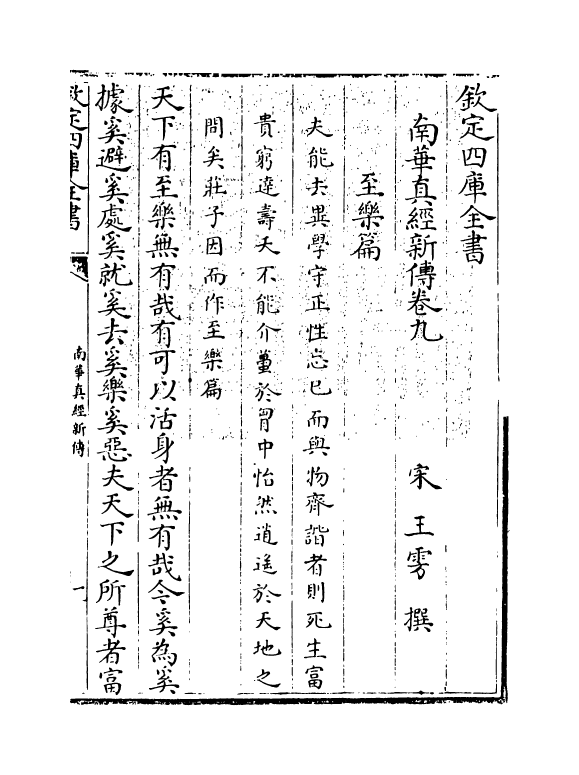 欽定四庫全書
南華真經新傳卷九
宋 王雱 撰
至樂篇
夫能去異學守正性忘已而與物齊諧者則死生富
貴窮達壽夭不能介蠆於胷中怡然逍遥於天地之
間矣莊子因而作至樂篇
天下有至樂無有哉有可以活身者無有哉今奚為奚
據奚避奚處奚就奚去奚樂奚惡夫天下之所尊者富
欽定四庫全書
南華真經新傳
一